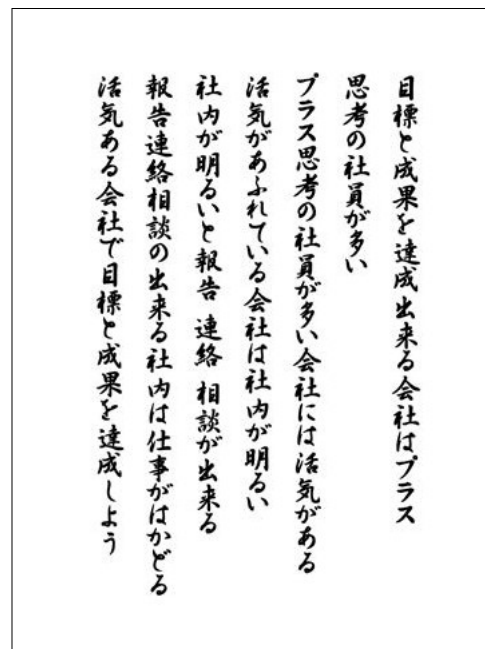 目標と成果を達成出来る会社はプラス
思考の社員が多い
プラス思考の社員が多い会社には活気がある
活気があふれている会社は社内が明るい
社内が明るいと報告 連絡 相談が出来る
報告連絡相談の出来る社内は仕事がはかどる
活気ある会社で目標と成果を達成しよう